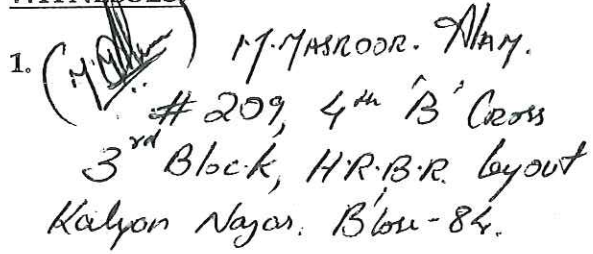 WITNESSES:
1. M. MASROOR. Alam.
# 209, 4th 'B' Cross
3rd Block, H.R.B.R. layout
Kalyan Nagar. B'lore-84.